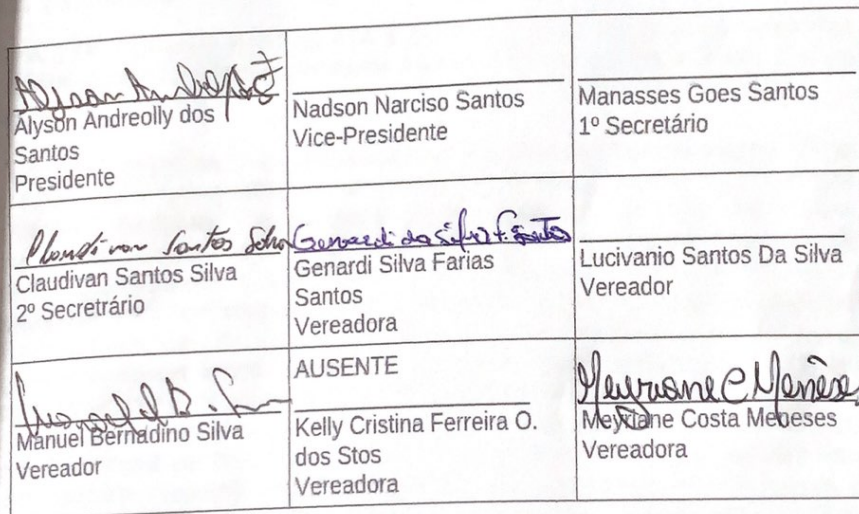 Alyson Andreolly dos
Santos
Presidente
Nadson Narciso Santos
Vice-Presidente
Manasses Goes Santos
1º Secretário
Claudivan Santos Silva
Claudivan Santos Silva
2º Secretrário
Genardi da Silva F. Santos
Genardi Silva Farias
Santos
Vereadora
Lucivanio Santos Da Silva
Vereador
Manuel Bernadino Silva
Vereador
AUSENTE
Kelly Cristina Ferreira O.
dos Stos
Vereadora
Meyriane C Meneses
Meyriane Costa Meneses
Vereadora